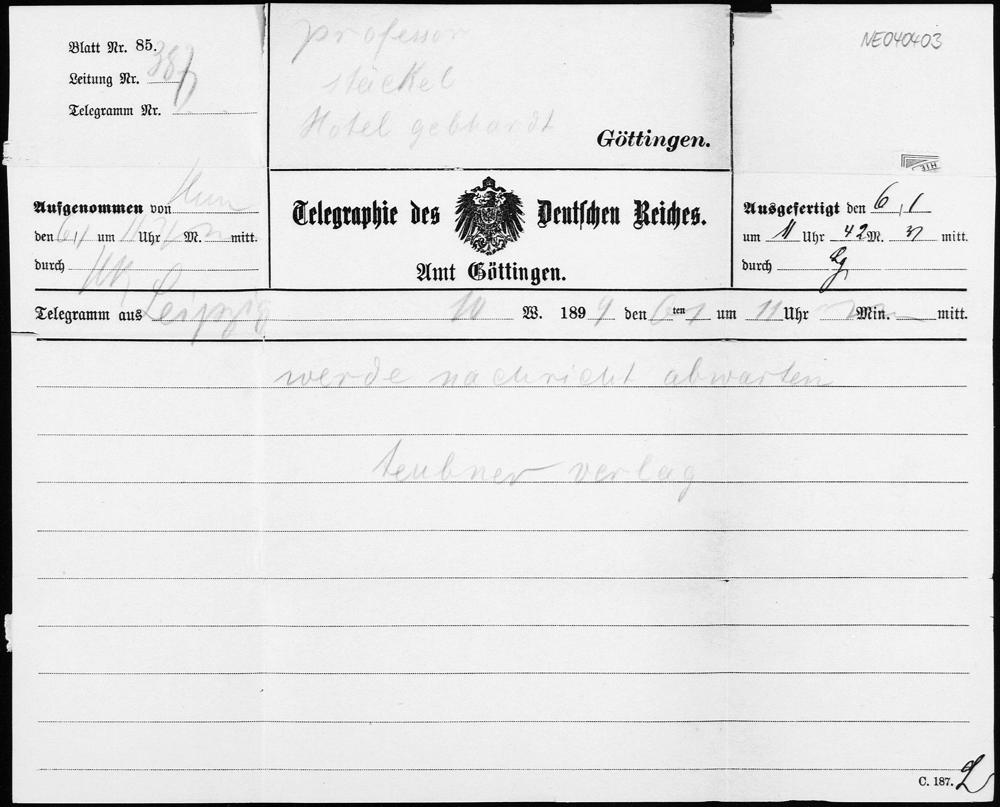 Blatt Nr. 85.
Leitung Nr.
Telegramm Nr.
professor
stäckel
Hotel gebhardt
Göttingen.
NE040403
Aufgenommen von
den 6/1 um 11 Uhr M. mitt.
durch
Telegraphie des Deutschen Reiches.
Amt Göttingen.
Ausgefertigt den 6/1
um 11 Uhr 42 M. mitt.
durch
Telegramm aus Leipzig 10 W. 1899 den 6ten 1 um 11 Uhr Min. mitt.
werde nachricht abwarten
teubner verlag
C. 187.